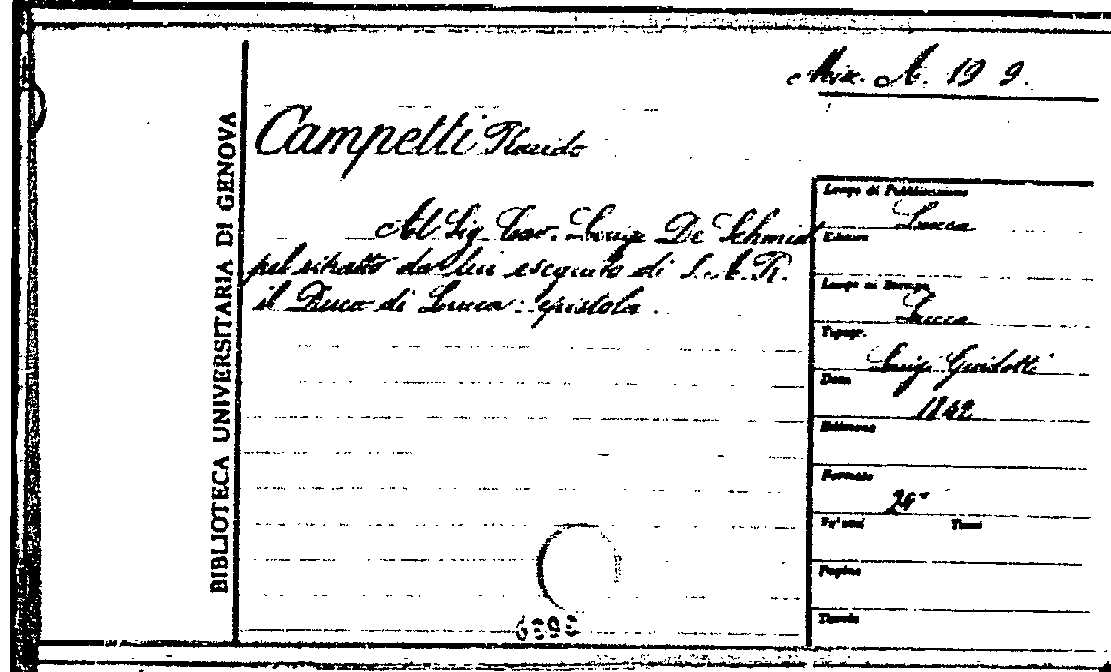 Misc. A. 19 9.
BIBLIOTECA UNIVERSITARIA DI GENOVA
Campetti Placido
Al Sig. Cav. Luigi De Schmidt
pel ritratto da lui eseguito di S. A. R.
il Duca di Lucca: epistola.
Luogo di Pubblicazione
Lucca
Editore
Luogo di Stampa
Lucca
Tipogr.
Luigi Guidotti
Data
1842
Edizione
Formato
24°
Volumi Tomi
Pagine
Tavole